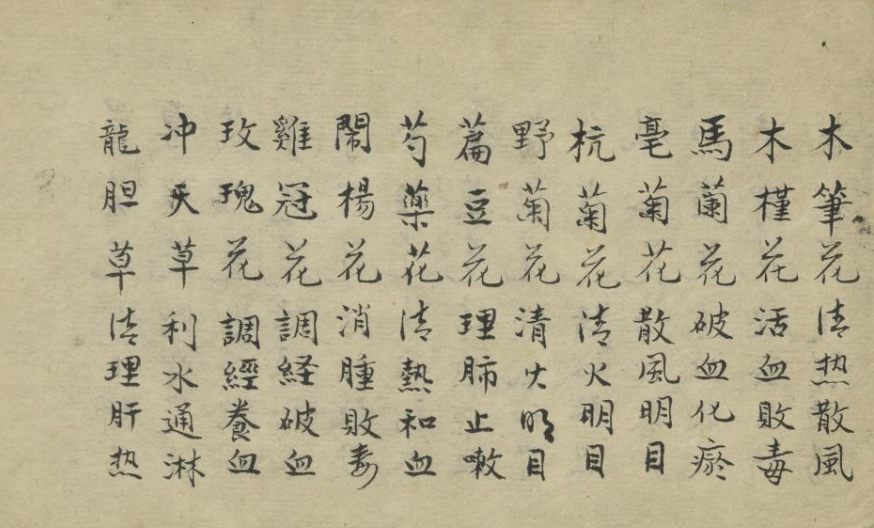 木筆花清热散風
木槿花活血敗毒
馬蘭花破血化瘀
亳菊花散風明目
杭菊花清火明目
野菊花清火明目
萹豆花理肺止嗽
芍藥花清熱和血
鬧楊花消腫敗毒
雞冠花調経破血
玫瑰花調經養血
冲天草利水通淋
龍胆草清理肝热